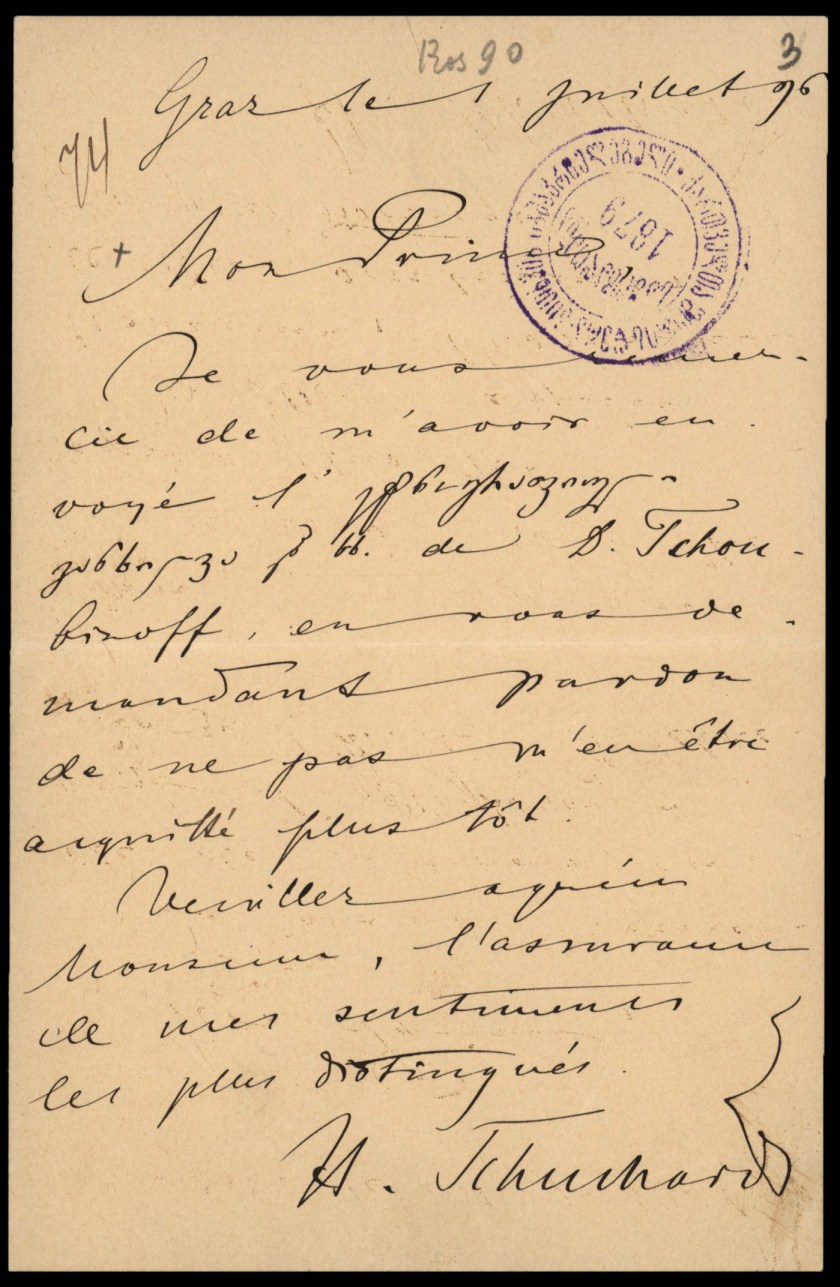 Ros 90
3
Graz le 1 juillet 96
74
Mon Prince
1879
Je vous remer-
cie de m'avoir en
voyé l'
de D. Tchou-
binoff, en vous de-
mandant pardon
de ne pas m'en être
acquitté plus tôt.
Veuillez agréer
Monsieur, l'assurance
de mes sentiments
les plus distingués.
H. Schuchardt